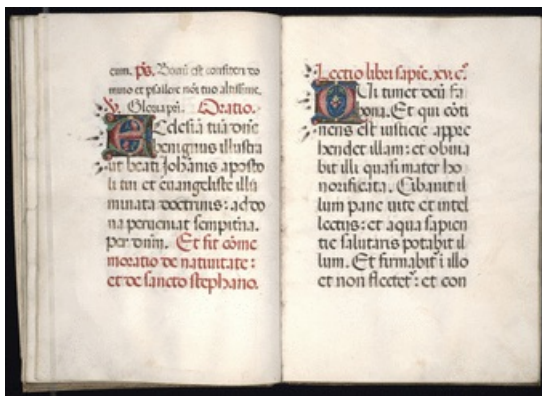 eum. p̄s. Bonū est confiteri do
mino et psallere nōi tuo altissime.
℣. Gloria pri. Oratio.
Ecclesiā tuā dn̄e
benignus illustra
ut beati Johānis aposto
li tui et euangeliste illu
minata doctrinis: ad do
na perueniat sempit̄na.
per dnm̄. Et fit cōme
moratio de natiuitate:
et de sancto stephano.
Lectio libri sapiē. xv. c̄.
Qui timet deū fa
bona. Et qui cōti
nens est iusticie appre
hendet illam: et obuia
bit illi quasi mater ho
norificata. Cibauit il
lum pane uite et intel
lectus: et aqua sapien
tie salutaris potabit il
lum. Et firmabit̄ i illo
et non flectet̄: et con